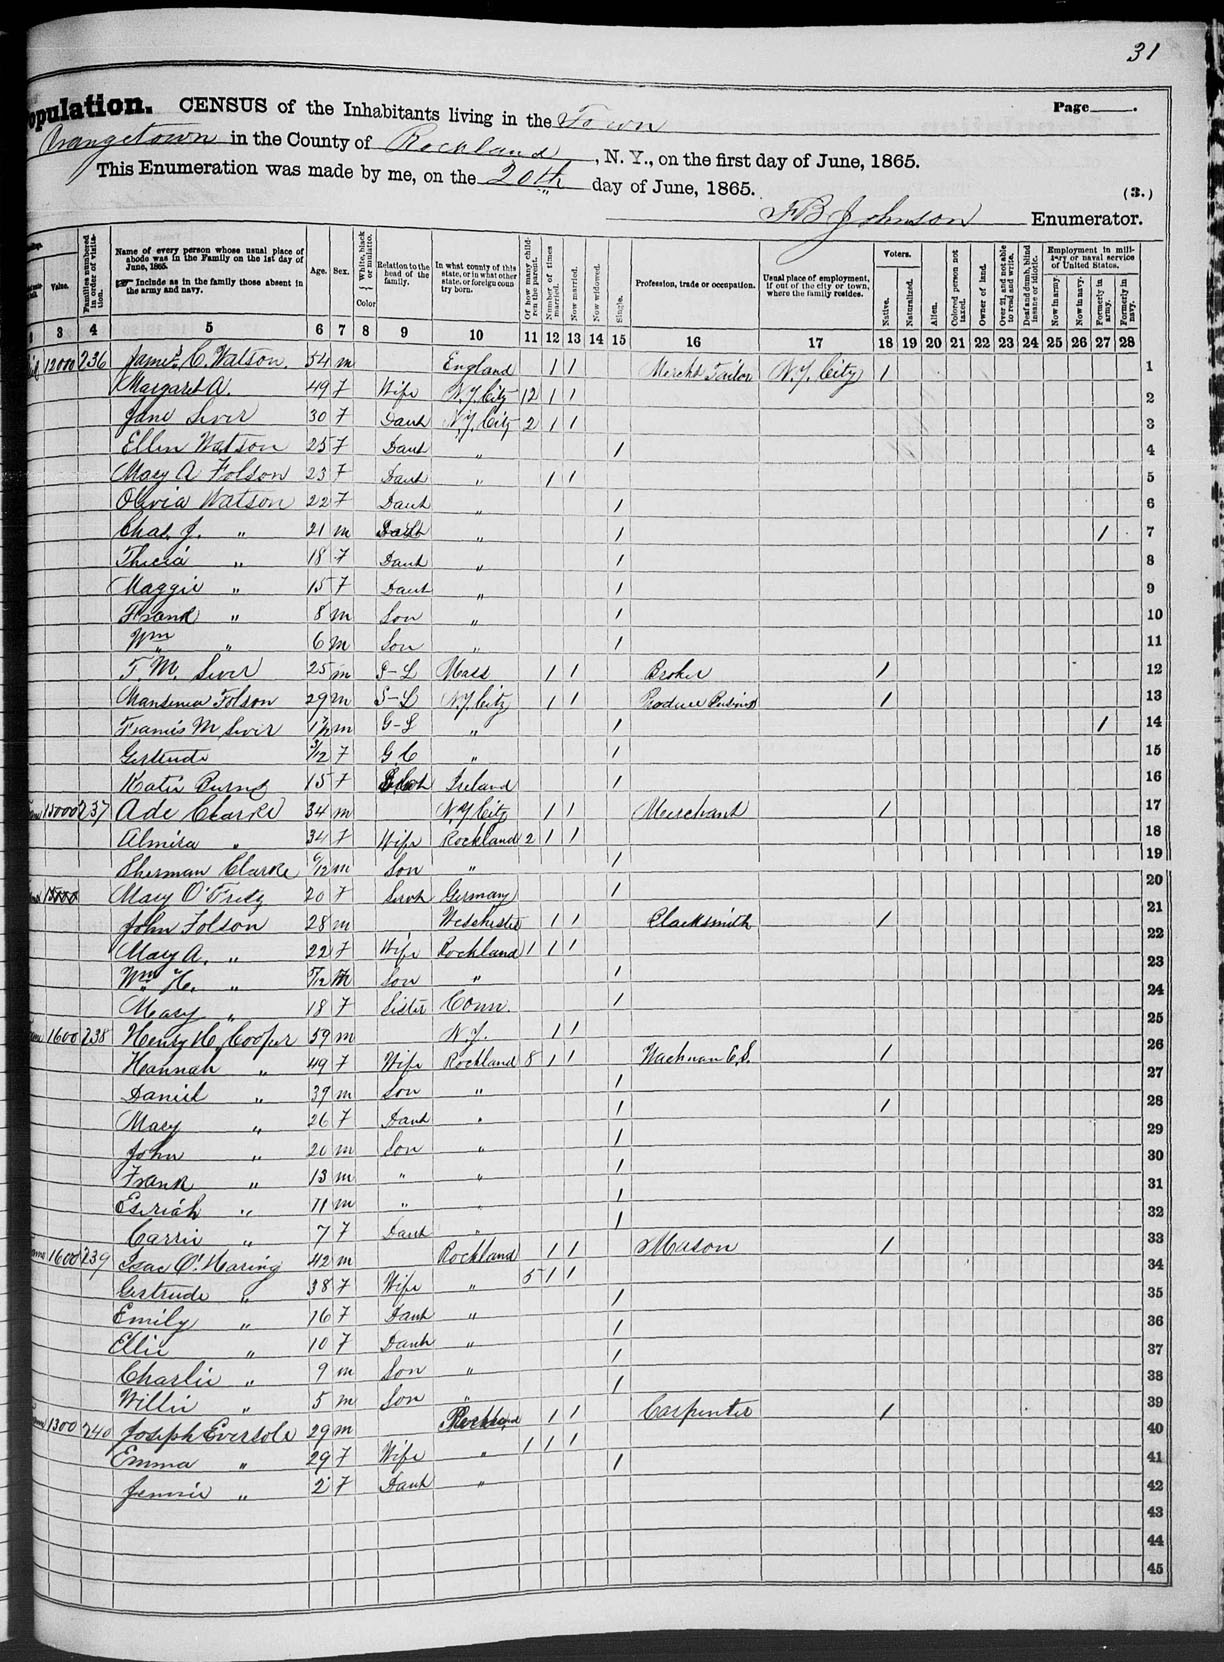 31
opulation. CENSUS of the Inhabitants living in the Town Page
Orangetown in the County of Rockland, N. Y., on the first day of June, 1865.
This Enumeration was made by me, on the 20th day of June, 1865. (3.)
F B Johnson Enumerator.
Value. Families numbered in order of visitation. Name of every person whose usual place of abode was in the Family on the 1st day of June, 1865. Include as in the family those absent in the army and navy. Age. Sex. White, black or mulatto. Color Relation to the head of the family. In what county of this state, or in what other state, or foreign country born. Of how many children the parent. Number of times married. Now married. Now widowed. Single. Profession, trade or occupation. Usual place of employment, if out of the city or town, where the family resides. Voters. Native. Naturalized. Alien. Colored person not taxed. Owner of land. Over 21, and not able to read and write. Deaf and dumb, blind insane or idiotic. Employment in military or naval service of United States. Now in army. Now in navy. Formerly in army. Formerly in navy.
3 4 5 6 7 8 9 10 11 12 13 14 15 16 17 18 19 20 21 22 23 24 25 26 27 28
12000 236 James C. Watson. 54 m England 1 1 Mercht Tailor N.Y. City 1 1
Margaret A. 49 F Wife N.Y. City 12 1 1 2
Jane Sever 30 F Daut N.Y. City 2 1 1 3
Ellen Watson 25 F Daut " 1 4
Mary A Folson 23 F Daut " 1 1 5
Olivia Watson 22 F Daut " 1 6
Chas. J. " 21 m " 1 1 7
18 F Daut " 1 8
Maggie " 15 F Daut " 1 9
Frank " 8 m Son " 1 10
Wm " 6 m Son " 1 11
T. M. Sever 25 m S-L Mass 1 1 Broker 1 12
Folson 29 m S-L N.Y City 1 1 Produce 1 13
Francis M Sever m G- " 1 1 14
Gertrude 3/12 F G C " 1 15
Katie Burns 15 F Ireland 1 16
15000 237 Ade Clarke 34 m N.Y City 1 1 Merchant 1 17
Almira " 34 F Wife Rockland 2 1 1 18
Sherman Clarke 6/12 m Son " 1 19
15000 Mary O'Fritz 20 F Servt Germany 1 20
John Folson 28 m Westchester 1 1 Blacksmith 1 21
Mary A. " 22 F Wife Rockland 1 1 1 22
Wm H. " 5/12 m Son " 1 23
Mary " 18 F Sister Conn. 1 24
1600 238 Henry H. Cooper 59 m N.J. 1 1 25
Hannah " 49 F Wife Rockland 8 1 1 1 26
Daniel " 39 m Son " 1 27
Mary " 26 F Daut " 1 1 28
John " 20 m Son " 1 29
Frank " 13 m " " 1 30
11 m " " 1 31
Carrie " 7 F Daut " 1 32
1600 239 Isac O. Haring 42 m Rockland 1 1 Mason 1 33
Gertrude " 38 F Wife " 5 1 1 34
Emily " 16 F Daut " 1 35
Ellie " 10 F Daut " 1 36
Charlie " 9 m Son " 1 37
Willie " 5 m Son " 1 38
1300 240 Joseph Eversole 29 m Rockland 1 1 Carpenter 1 39
Emma " 29 F Wife " 1 1 1 40
Jennie " 2 F Daut " 1 41
42
43
44
45